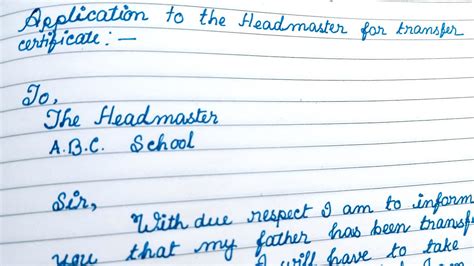 Application to the Headmaster for transfer
certificate: —
To,
The Headmaster
A.B.C. School
Sir,
With due respect I am to inform
you that my father has been transf
I will have to take